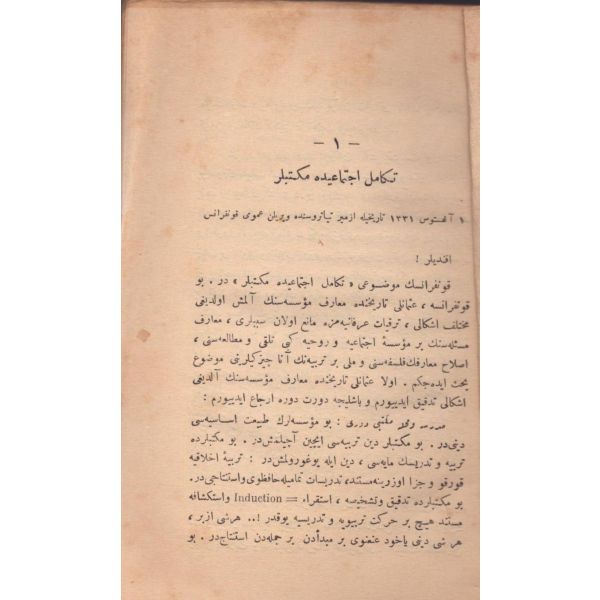 — ١ —
تكامل اجتماعيده مكتبلر
١ آغستوس ١٣٣١ تاريخيله ازمير تياتروسنده ويريلن عمومى قونفرانس
افنديلر !
قونفرانسك موضوعى « تكامل اجتماعيده مكتبلر » در . بو
قونفرانسده ، عثمانلى تاريخنده معارف مؤسسه‌سنك آلمش اولديغى
مختلف اشكالى ، ترقيات عرفانيه‌مزه مانع اولان سببلرى ، معارف
مسئله‌سنك بر مؤسسهٔ اجتماعيه و روحيه كبى تلقى و مطالعه‌سنى ،
اصلاح معارفك فلسفه‌سنى و ملى بر تربيه‌نك آنا چيزكيلرينى موضوع
بحث ايده‌جكم . اولا عثمانلى تاريخنده معارف مؤسسه‌سنك آلديغى
اشكالى تدقيق ايدييورم و باشليجه دورت دوره ارجاع ايدييورم :
مدرسه ومحله مكتبى دورى : بو مؤسسه‌لرك طبيعت اساسيه‌سى
دينى‌در . بو مكتبلر دين تربيه‌سى ايچين آچيلمش‌در . بو مكتبلرده
تربيه و تدريسك مايه‌سى ، دين ايله يوغورولمش‌در : تربيهٔ اخلاقيه
قورقو و جزا اوزرينه مستند ، تدريسات تماميله حافظوى واستنتاجى‌در .
بو مكتبلرده تدقيق وتشخيصه ، استقراء = Induction واستكشافه
مستند هيچ بر حركت تربيويه و تدريسيه يوقدر !.. هر شى ازبر ،
هر شى دينى ياخود عنعنوى بر مبدأدن بر جمله‌دن استنتاج‌در . بو